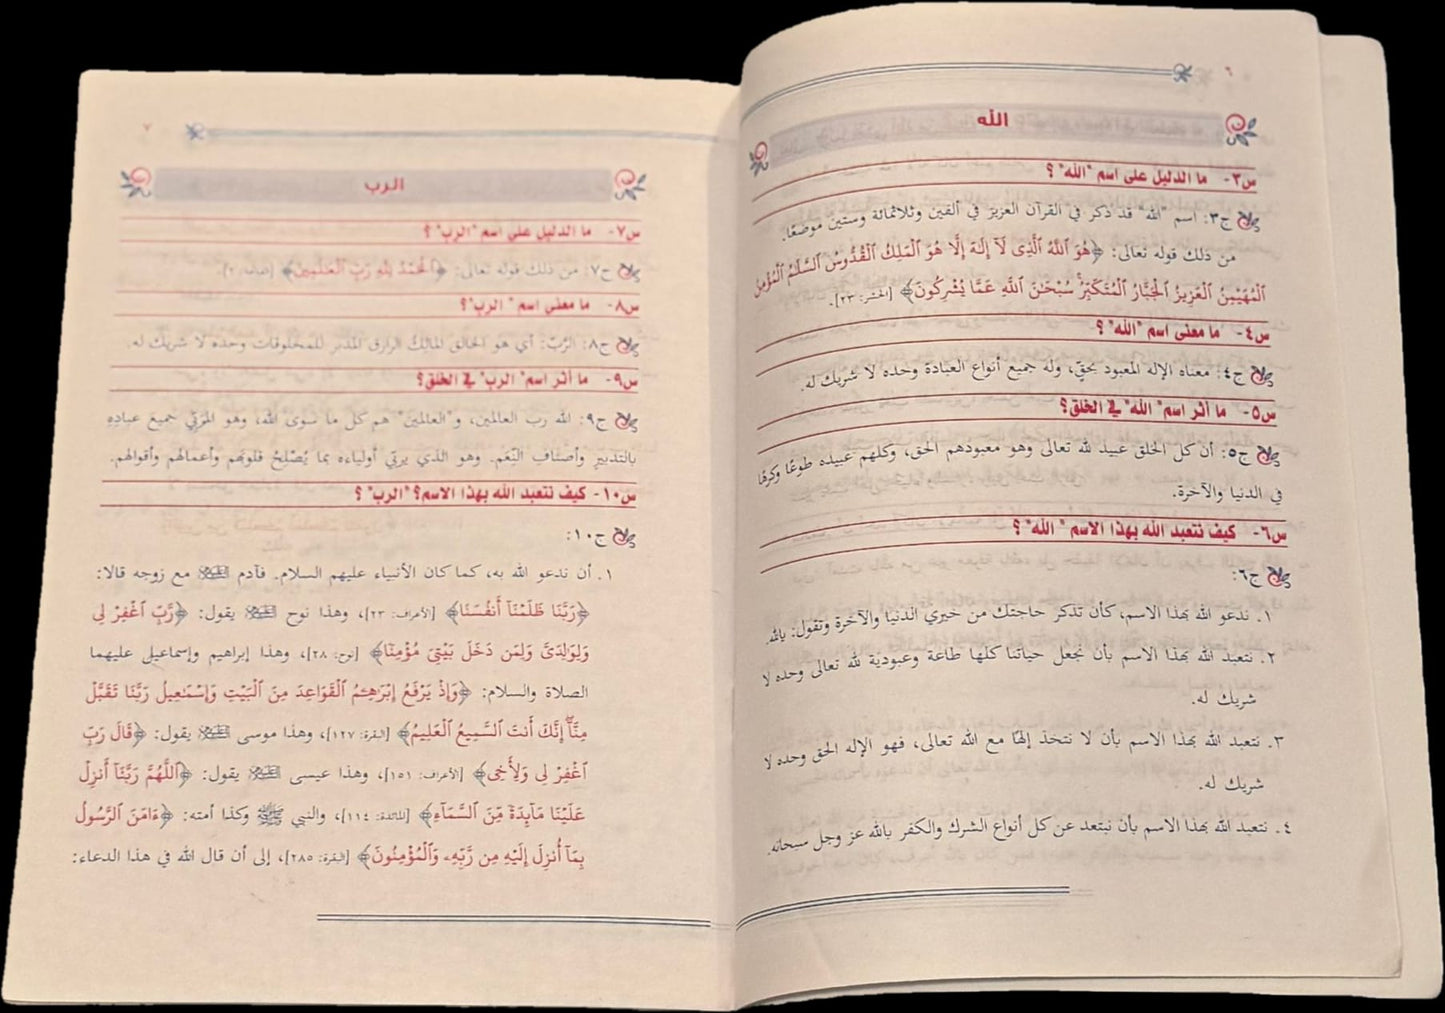 ٦
الله
س٣- ما الدليل على اسم "الله" ؟
ج٣: اسم "الله" قد ذكر في القرآن العزيز في ألفين وثلاثمائة وستين موضعًا.
من ذلك قوله تعالى: ﴿هُوَ ٱللَّهُ ٱلَّذِى لَآ إِلَٰهَ إِلَّا هُوَ ٱلْمَلِكُ ٱلْقُدُّوسُ ٱلسَّلَٰمُ ٱلْمُؤْمِنُ
ٱلْمُهَيْمِنُ ٱلْعَزِيزُ ٱلْجَبَّارُ ٱلْمُتَكَبِّرُ سُبْحَٰنَ ٱللَّهِ عَمَّا يُشْرِكُونَ﴾ [الحشر: ٢٣].
س٤- ما معنى اسم "الله" ؟
ج٤: معناه الإله المعبود بحقٍّ، وله جميع أنواع العبادة وحده لا شريك له.
س٥- ما أثر اسم" الله" في الخلق؟
ج٥: أن كل الخلق عبيد لله تعالى وهو معبودهم الحق، وكلهم عبيده طوعًا وكرهًا
في الدنيا والآخرة.
س٦- كيف نتعبد الله بهذا الاسم " الله" ؟
ج٦:
١. ندعو الله بهذا الاسم، كأن تذكر حاجتك من خيري الدنيا والآخرة وتقول: يالله.
٢. نتعبد الله بهذا الاسم بأن نجعل حياتنا كلها طاعة وعبودية لله تعالى وحده لا
شريك له.
٣. نتعبد الله بهذا الاسم بأن لا نتخذ إلهًا مع الله تعالى، فهو الإله الحق وحده لا
شريك له.
٤. نتعبد الله بهذا الاسم بأن نبتعد عن كل أنواع الشرك والكفر بالله عز وجل سبحانه.
٧
الرب
س٧- ما الدليل على اسم "الرب" ؟
ج٧: من ذلك قوله تعالى: ﴿ٱلْحَمْدُ لِلَّهِ رَبِّ ٱلْعَٰلَمِينَ﴾ [الفاتحة: ٢].
س٨- ما معنى اسم " الرب"؟
ج٨: الرَّبّ: أي هو الخالق المالِك الرازق المدَبر للمخلوقات وحده لا شريك له.
س٩- ما أثر اسم" الرب" في الخلق؟
ج٩: الله رب العالمين، و"العالمين" هم كل ما سوى الله، وهو المرَبّي جميعَ عبادِهِ
بالتدبيرِ وأصنافِ النِّعَم. وهو الذي يربّي أولياءه بما يُصْلِحُ قلوبَهم وأعمالَهم وأقوالَهم.
س١٠- كيف نتعبد الله بهذا الاسم؟ "الرب" ؟
ج١٠:
١. أن ندعو الله به، كما كان الأنبياء عليهم السلام. فآدم ﷺ مع زوجه قالا:
﴿رَبَّنَا ظَلَمْنَآ أَنفُسَنَا﴾ [الأعراف: ٢٣]، وهذا نوح ﷺ يقول: ﴿رَّبِّ ٱغْفِرْ لِى
وَلِوَٰلِدَىَّ وَلِمَن دَخَلَ بَيْتِىَ مُؤْمِنًا﴾ [نوح: ٢٨]، وهذا إبراهيم وإسماعيل عليهما
الصلاة والسلام: ﴿وَإِذْ يَرْفَعُ إِبْرَٰهِۦمُ ٱلْقَوَاعِدَ مِنَ ٱلْبَيْتِ وَإِسْمَٰعِيلُ رَبَّنَا تَقَبَّلْ
مِنَّآ إِنَّكَ أَنتَ ٱلسَّمِيعُ ٱلْعَلِيمُ﴾ [البقرة: ١٢٧]، وهذا موسى ﷺ يقول: ﴿قَالَ رَبِّ
ٱغْفِرْ لِى وَلِأَخِى﴾ [الأعراف: ١٥١]، وهذا عيسى ﷺ يقول: ﴿ٱللَّهُمَّ رَبَّنَآ أَنزِلْ
عَلَيْنَا مَآئِدَةً مِّنَ ٱلسَّمَآءِ﴾ [المائدة: ١١٤]، والنبي ﷺ وكذا أمته: ﴿ءَامَنَ ٱلرَّسُولُ
بِمَآ أُنزِلَ إِلَيْهِ مِن رَّبِّهِۦ وَٱلْمُؤْمِنُونَ﴾ [البقرة: ٢٨٥]، إلى أن قال الله في هذا الدعاء: